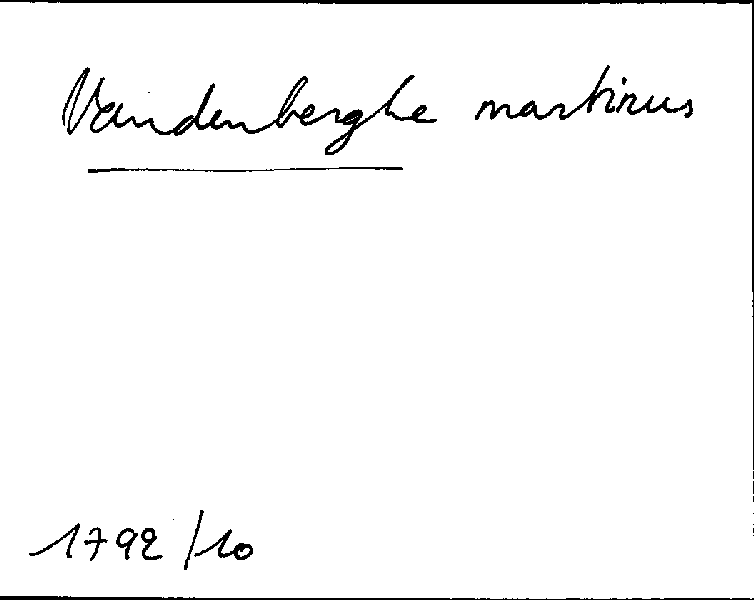 Vandenberghe martinus
1792/10